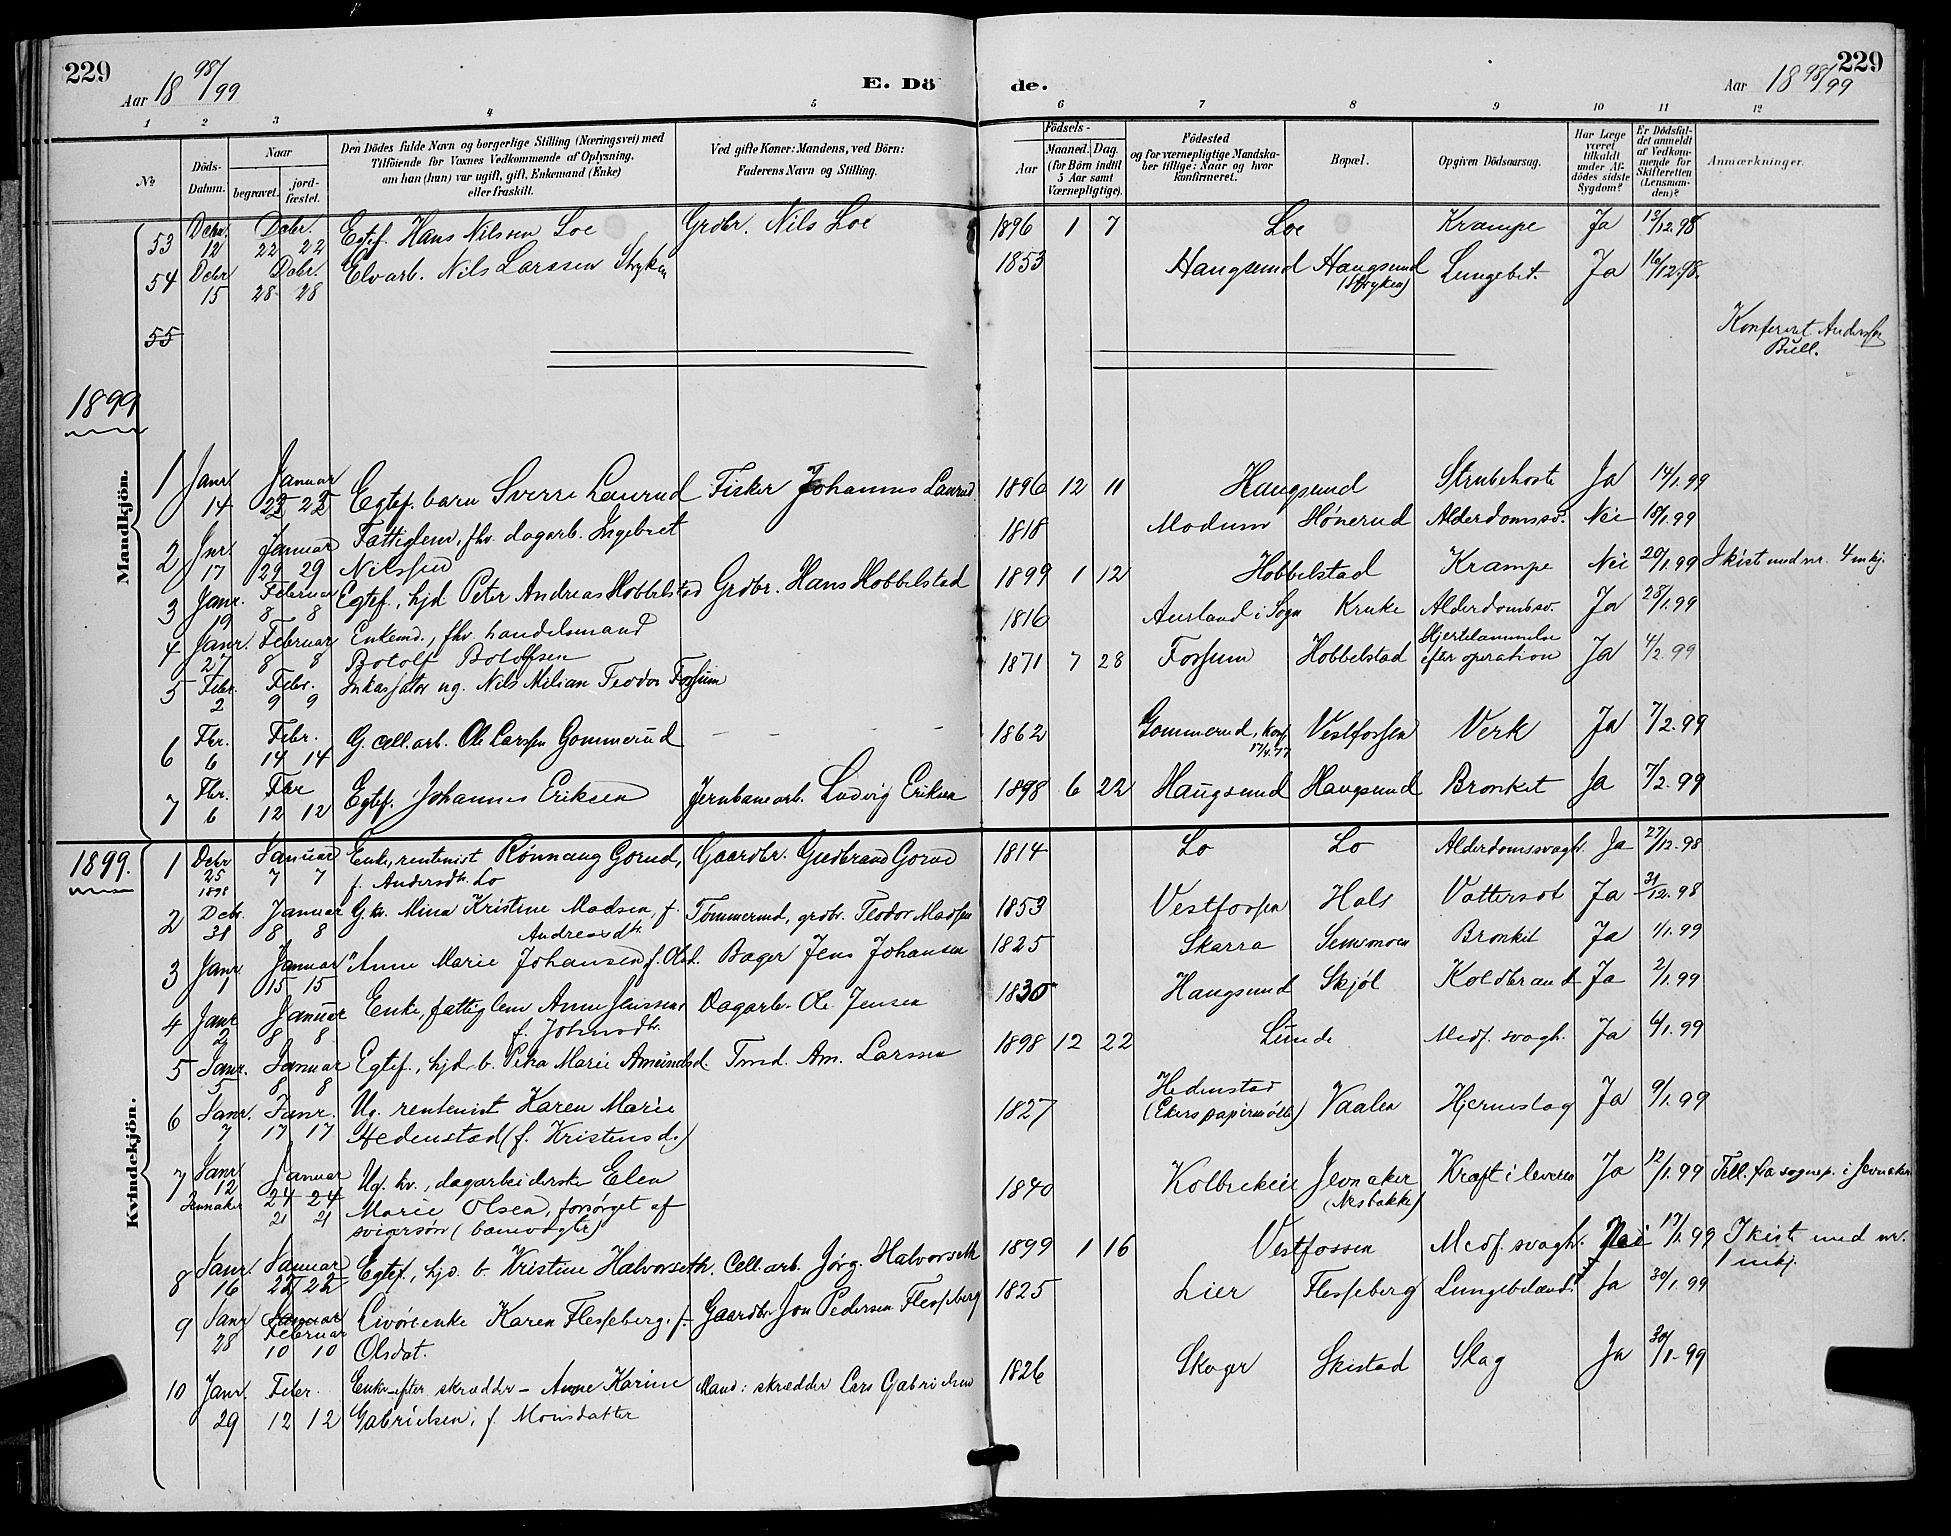 229
Aar 18 98/99
E. Dö de.
Aar 18 98/99
229
1 2 3 4 5 6 7 8 9 10 11 12
№
Döds-Datum.
Naar
begravet.
jord-fæstet.
Den Dödes fulde Navn og borgerlige Stilling (Næringsvei) med
Tilföiende for Voxnes Vedkommende af Oplysning,
om han (hun) var ugift, gift, Enkemand (Enke)
eller fraskilt.
Ved gifte Koner: Mandens, ved Börn:
Faderens Navn og Stilling.
Födsels-
Aar
Maaned. Dag.
(for Börn indtil
5 Aar samt
Værnepligtige).
Födested
og for værnepligtige Mandska-
ber tillige: Naar og hvor
konfirmeret.
Bopæl.
Opgiven Dödsaarsag.
Har Læge
været
tilkaldt
under Af-
dödes sidste
Sygdom?
Er Dödsfal-
det anmeldt
af Vedkom-
mende for
Skifteretten
(Lensman-
den)?
Anmærkninger.
Mandkjön.
53 Debr. 12 Debr. 22 22 Egtef. Hans Nilssen Loe Grdbr. Nils Loe 1896 1 7 Loe Krampe Ja 13/12.98
54 Debr 15 Debr. 28 28 Elvarb. Nils Larssen Stryken 1853 Haugsund Haugsund (Stryken) Lungebet. Ja 16/12.98.
55
Konfereret Anderssen
Bull.
1899
1 Janr. 14 Januar 22 22 Egtef. barn Sverre Laurud Fisker Johannes Laurud 1896 12 11 Haugsund Strubehoste Ja 14/1.99
2 Jnr. 17 Januar 29 29 Fattiglem, fhv. dagarb. Ingebret
Nilssen 1818 Modum Hönerud Alderdomssv. Nei 18/1.99
3 Janr. 19 Februar 8 8 Egtef., hjd Peter Andreas Hobbelstad Grdbr. Hans Hobbelstad 1899 1 12 Hobbelstad Krampe Nei 20/1.99 I kist med nr. 4 mkj.
4 Janr. 27 Februar 8 8 Enkemd., fhv. handelsmand
Botolf Botolfsen 1816 Aurland i Sogn Kruke Alderdomssv. Ja 28/1.99
5 Febr. 2 Febr. 9 9 Inkassator ug. Nils Milian Teodor Forsum 1871 7 28 Forsum Hobbelstad Hjertelammelse
efter operation Ja 4/2.99
6 Fbr. 6 Febr. 14 14 G. cell.arb. Ole Larssen Gommerud – – – 1862 Gommerud, konf. 17/4.77 Vestfossen Verk Ja 7/2.99
7 Fbr. 6 Fbr 12 12 Egtef. Johannes Eriksen Jernbanearb. Ludvig Eriksen 1898 6 22 Haugsund Haugsund Bronkit Ja 7/2.99
1899.
Kvindekjön.
1 Debr 25 1898 Januar 7 7 Enke, rentenist Rönnaug Gorud, Gaardbr. Gudbrand Gorud 1814 Lo Lo Alderdomssvagh. Ja 27/12.98
f. Andersdtr. Lo
2 Debr. 31 Januar 8 8 G. kv. Mina Kristine Madsen, f. Tömmermd, grdbr. Teodor Madsen 1853 Vestfossen Hals Vattersot Ja 31/12.98
Andreasdtr.
3 Janr 1 Januar 15 15 " Anne Marie Johansen f. Olsd. Bager Jens Johansen 1825 Skarra Semsmoen Bronkit Ja 1/1.99
4 Janr 2 Januar 8 8 Enke, fattiglem Anne Jenssen Dagarb. Ole Jensen 1830 Haugsund Skjöl Koldbrand Ja 2/1.99
f. Johnsdtr.
5 Janr. 5 Januar 8 8 Egtef., hjd. b. Petra Marie Amundsd. Tmd. Am. Larssen 1898 12 22 Lunde Medf. svagh. Ja 6/1.99
6 Janr. 7 Janr. 17 17 Ug. rentenist Karen Marie
Hedenstad (f. Kristensd.) 1827 Hedenstad
(Ekers papirmölle) Vaalen Hjerneslag Ja 9/1.99
7 Janr 12 Jevnaker Januar 24 24 21 21 Ug. kv., dagarbeiderske Elen
Marie Olsen, forsörget af
svigersön (banevogter) 1840 Kolbrekeie Jevnaker
(Nesbakke) Kræft i leveren Ja 12/1.99 Tell. fra sognep. i Jevnaker
8 Janr. 16 Januar 22 22 Egtef., hjd. b. Kristine Halvorseth. Cell.arb. Jörg. Halvorseth 1899 1 16 Vestfossen Medf. svagh. Nei 17/1.99 I kist med nr.
1 mkj.
9 Janr 28 Januar Februar 10 10 Livörsenke Karen Flesseberg. f. Gaardbr Jon Pedersen Flesseberg 1825 Lier Flesseberg Lungebetænd. Ja 30/1.99
Olsdat.
10 Janr. 29 Febr. 12 12 Enke efter skrædder – Anne Karine Mand: skrædder Lars Gabrielsen 1826 Skoger Skistad Slag Ja 30/1.99
Gabrielsen, f. Monsdatter